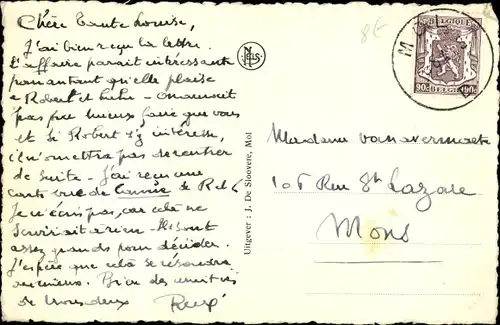 Chère tante Louise,
J'ai bien reçu la lettre.
L'affaire parait intéressante
pourvu qu'elle plaise
à Robert et Lulu - on aurait
pas pu mieux faire que vous
et si Robert s'y intéresse,
il n'omettra pas de rentrer
de suite - J'ai reçu une
carte vue de de R et L
Je n'écris pas, car cela ne
servirait à rien - Ils sont
assez grands pour décider.
J'espère que cela se résoudra
au mieux. Bien des amitiés
de nous deux
8E
NELS
Uitgever : J. De Sloovere, Mol
BELGIQUE
90c
BELGIE
M
Madame Vanavermaete
106 Rue St Lazare
Mons